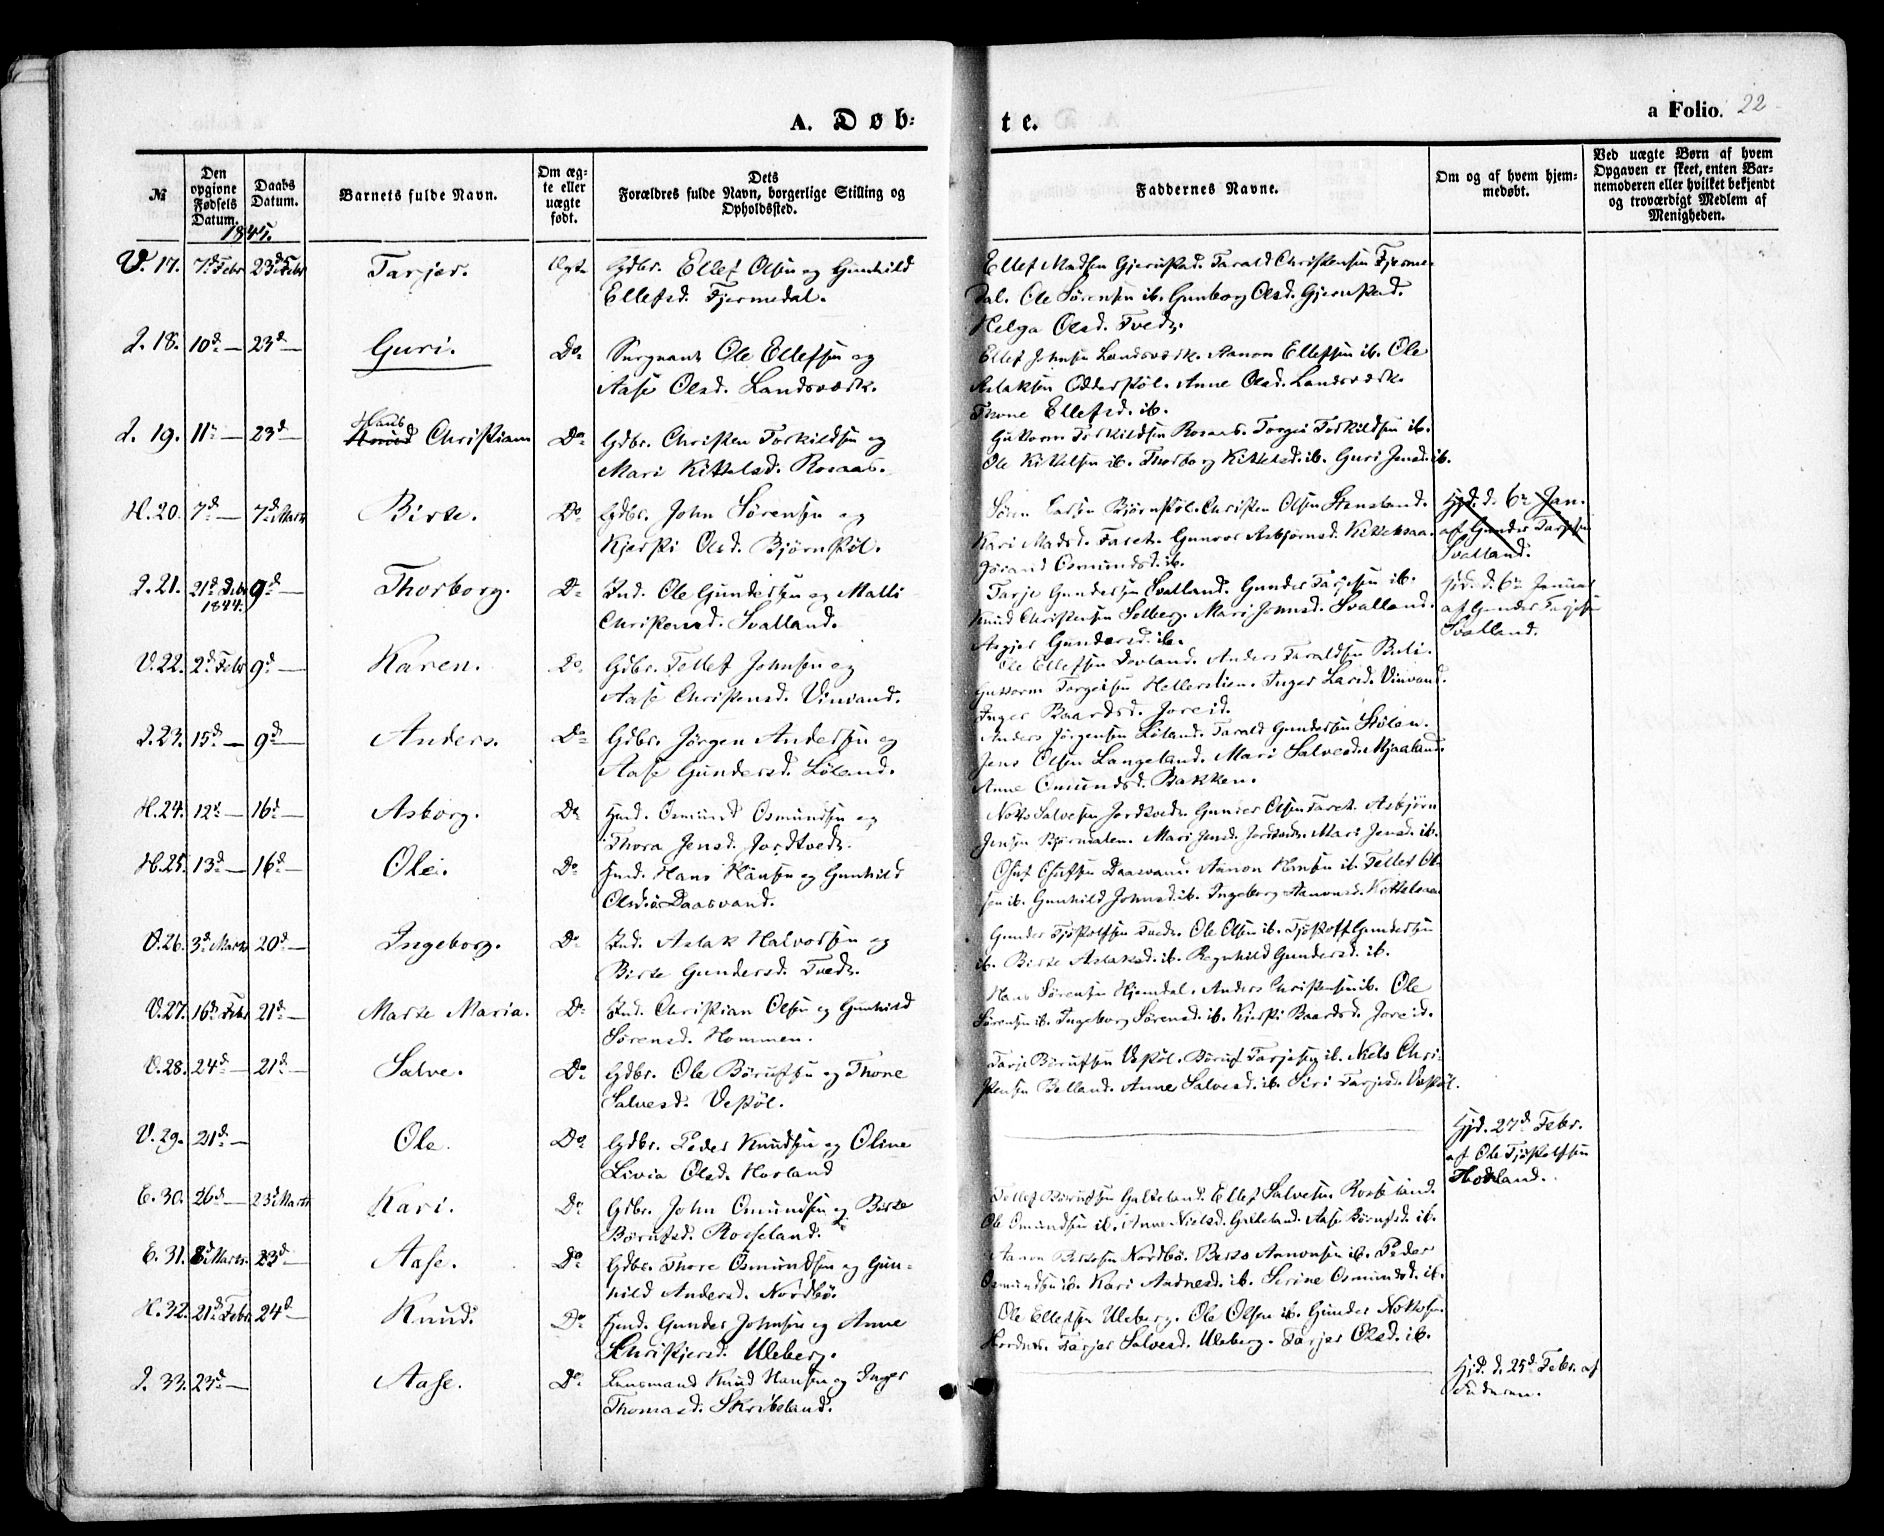 A. Døb:
te.
a Folio. 22
№
Den opgivne Fødsels Datum.
Daabs Datum.
Barnets fulde Navn.
Om ægte eller uægte født.
Dets Forældres fulde Navn, borgerlige Stilling og Opholdssted.
Faddernes Navne.
Om og af hvem hjemmedøbt.
Ved uægte Børn af hvem Opgaven er skeet, enten Barnemoderen eller hvilket bekjendt og troværdigt Medlem af Menigheden.
1845.
V. 17. 7d Febr 23d Febr Tarjer. Ægte Gdbr. Ellef Olsen og Gunhild
Ellefsd. Fjermedal.
Ellef Madsen Gjerustad. Tarald Christensen Fjerme-
dal. Ole Sørensen ib. Gunborg Olsd. Gjerustad.
Helga Olsd. Tvedt.
I. 18. 10d — 23d — Guri. Do Sergeant Ole Ellefsen og
Aase Olsd. Landsværk.
Ellef Johnsen Landsværk. Aanon Ellefsen ib. Ole
Aslaksen Odderstøl. Anne Olsd. Landsværk.
Thone Ellefsd. ib.
I. 19. 11te — 23d — Hans Christian Do Gdbr. Christen Torkildsen og
Mari Kittelsd. Rosaas.
Guttorm Torkildsen Rosaas. Torgei Torkildsen ib.
Ole Kittelsen ib. Thorborg Kittelsd. ib. Guri Jensd. ib.
H. 20. 7d — 7d Marts Birte. Do Gdbr. John Sørensen og
Kjersti Olsd. Bjørnstøl.
Søren Larsen Bjørnstøl. Christen Olsen Stensland.
Kari Madsd. Faret. Gunvor Asbjørnsd. Kittelsaa.
Jorand Osmundsd. ib.
Hjd. d. 6te Jan.
af Gunder Tarjesen
Svalland.
I. 21. 21d Debr 1844. 9d — Thorborg. Do Ind. Ole Gundersen og Malli
Christensd. Svalland.
Tarje Gundersen Svalland. Gunder Tarjesen ib.
Knud Christensen Solberg. Mari Johnsd. Svalland.
Asgjer Gundersd. ib.
Hjd. d. 6te Januar
af Gunder Tarjesen
Svalland.
V. 22. 2d Febr 9d — Karen. Do Gdbr. Tellef Johnsen og
Aase Christensd. Vinvand.
Ole Ellefsen Dovland. Anders Taraldsen Buli.
Guttorm Torgeisen Hellerslien. Inger Larsd. Vinvand.
Inger Baardsd. Joreid.
I. 23. 15d — 9d — Anders. Do Gdbr. Jørgen Andersen og
Aase Gundersd. Løland.
Anders Jørgensen Løland. Tarald Gundersen Stølen.
Jens Olsen Langeland. Mari Salvesd. Mjaaland.
Anne Omundsd. Bakken.
H. 24. 12te — 16d — Asborg. Do Hmd. Osmund Osmundsen og
Thora Jensd. Jordtvedt.
Notto Salvesen Jordtvedt. Gunder Olsen Faret. Asbjørn
Jensen Bjørmalen. Mari Jensd. Jordtvedt. Mari Jensd. ib.
H. 25. 13d — 16d — Ole. Do Hmd. Hans Hansen og Gunhild
Olsd. Daasvand.
Oluf Olufsen Daasvand. Aanon Hansen ib. Tellef Ol-
sen ib. Gunhild Johnsd. ib. Ingeborg Aanonsd. Kittelsaa.
V. 26. 3d Marts 20d — Ingeborg. Do Ind. Aslak Halvorsen og
Birte Gundersd. Tvedt.
Gunder Tjøstolfsen Tvedt. Ole Olsen ib. Tjøstolf Gundersen
ib. Birte Aslaksd. ib. Regnhild Gundersd. ib.
V. 27. 16d Febr 21d — Marte Maria. Do Ind. Christian Olsen og Gunhild
Sørensd. Hommen.
Hans Sørensen Hjemdal. Anders Christensen ib. Ole
Sørensen ib. Ingeborg Sørensd. ib. Kirsti Baardsd. Joreid.
V. 28. 24d — 21d — Salve. Do Gdbr. Ole Børufsen og Thone
Salvesd. Vestøl.
Tarje Børufsen Vestøl. Børuf Tarjesen ib. Niels Chri-
stensen Belland. Anne Salvesd. ib. Siri Tarjesd. Vestøl.
V. 29. 21d — Ole. Do Gdbr. Peder Knudsen og Oline
Livia Olsd. Horland
Hjd. 27d Febr.
af Ole Tjøstolfsen
Hodland.
E. 30. 26d — 23d Marts Kari. Do Gdbr. John Omundsen og Birte
Børufsd. Rosseland.
Tellef Børufsen Galteland. Ellef Salvesen Rosseland.
Ole Omundsen ib. Anne Nielsd. Galteland. Aase Børufsd. ib.
E. 31. 8d Marts. 23d — Aase. Do Gdbr. Thore Osmundsen og Gun-
hild Andersd. Nordbø.
Aanon Bertosen Nordbø. Berto Aanonsen ib. Peder
Osmundsen ib. Kari Andresd. ib. Serine Osmundsd. ib.
H. 32. 21d Febr. 24d — Knud. Do Hmd. Gunder Johnsen og Anne
Schistjersd. Uleberg.
Ole Ellefsen Uleberg. Ole Olsen ib. Gunder Nottosen
Hordnes. Tarjer Salvesd. Uleberg. Tarjer Olsd. ib.
I. 33. 23d — Aase. Do Lensmand Knud Hansen og Inger
Thomasd. Skribeland.
Hjd. d. 25d Febr. af